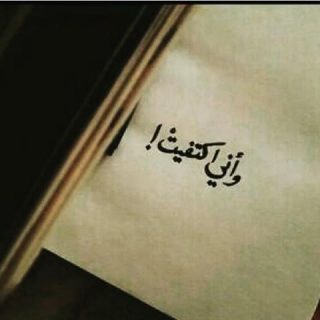 وأني اكتفيت !